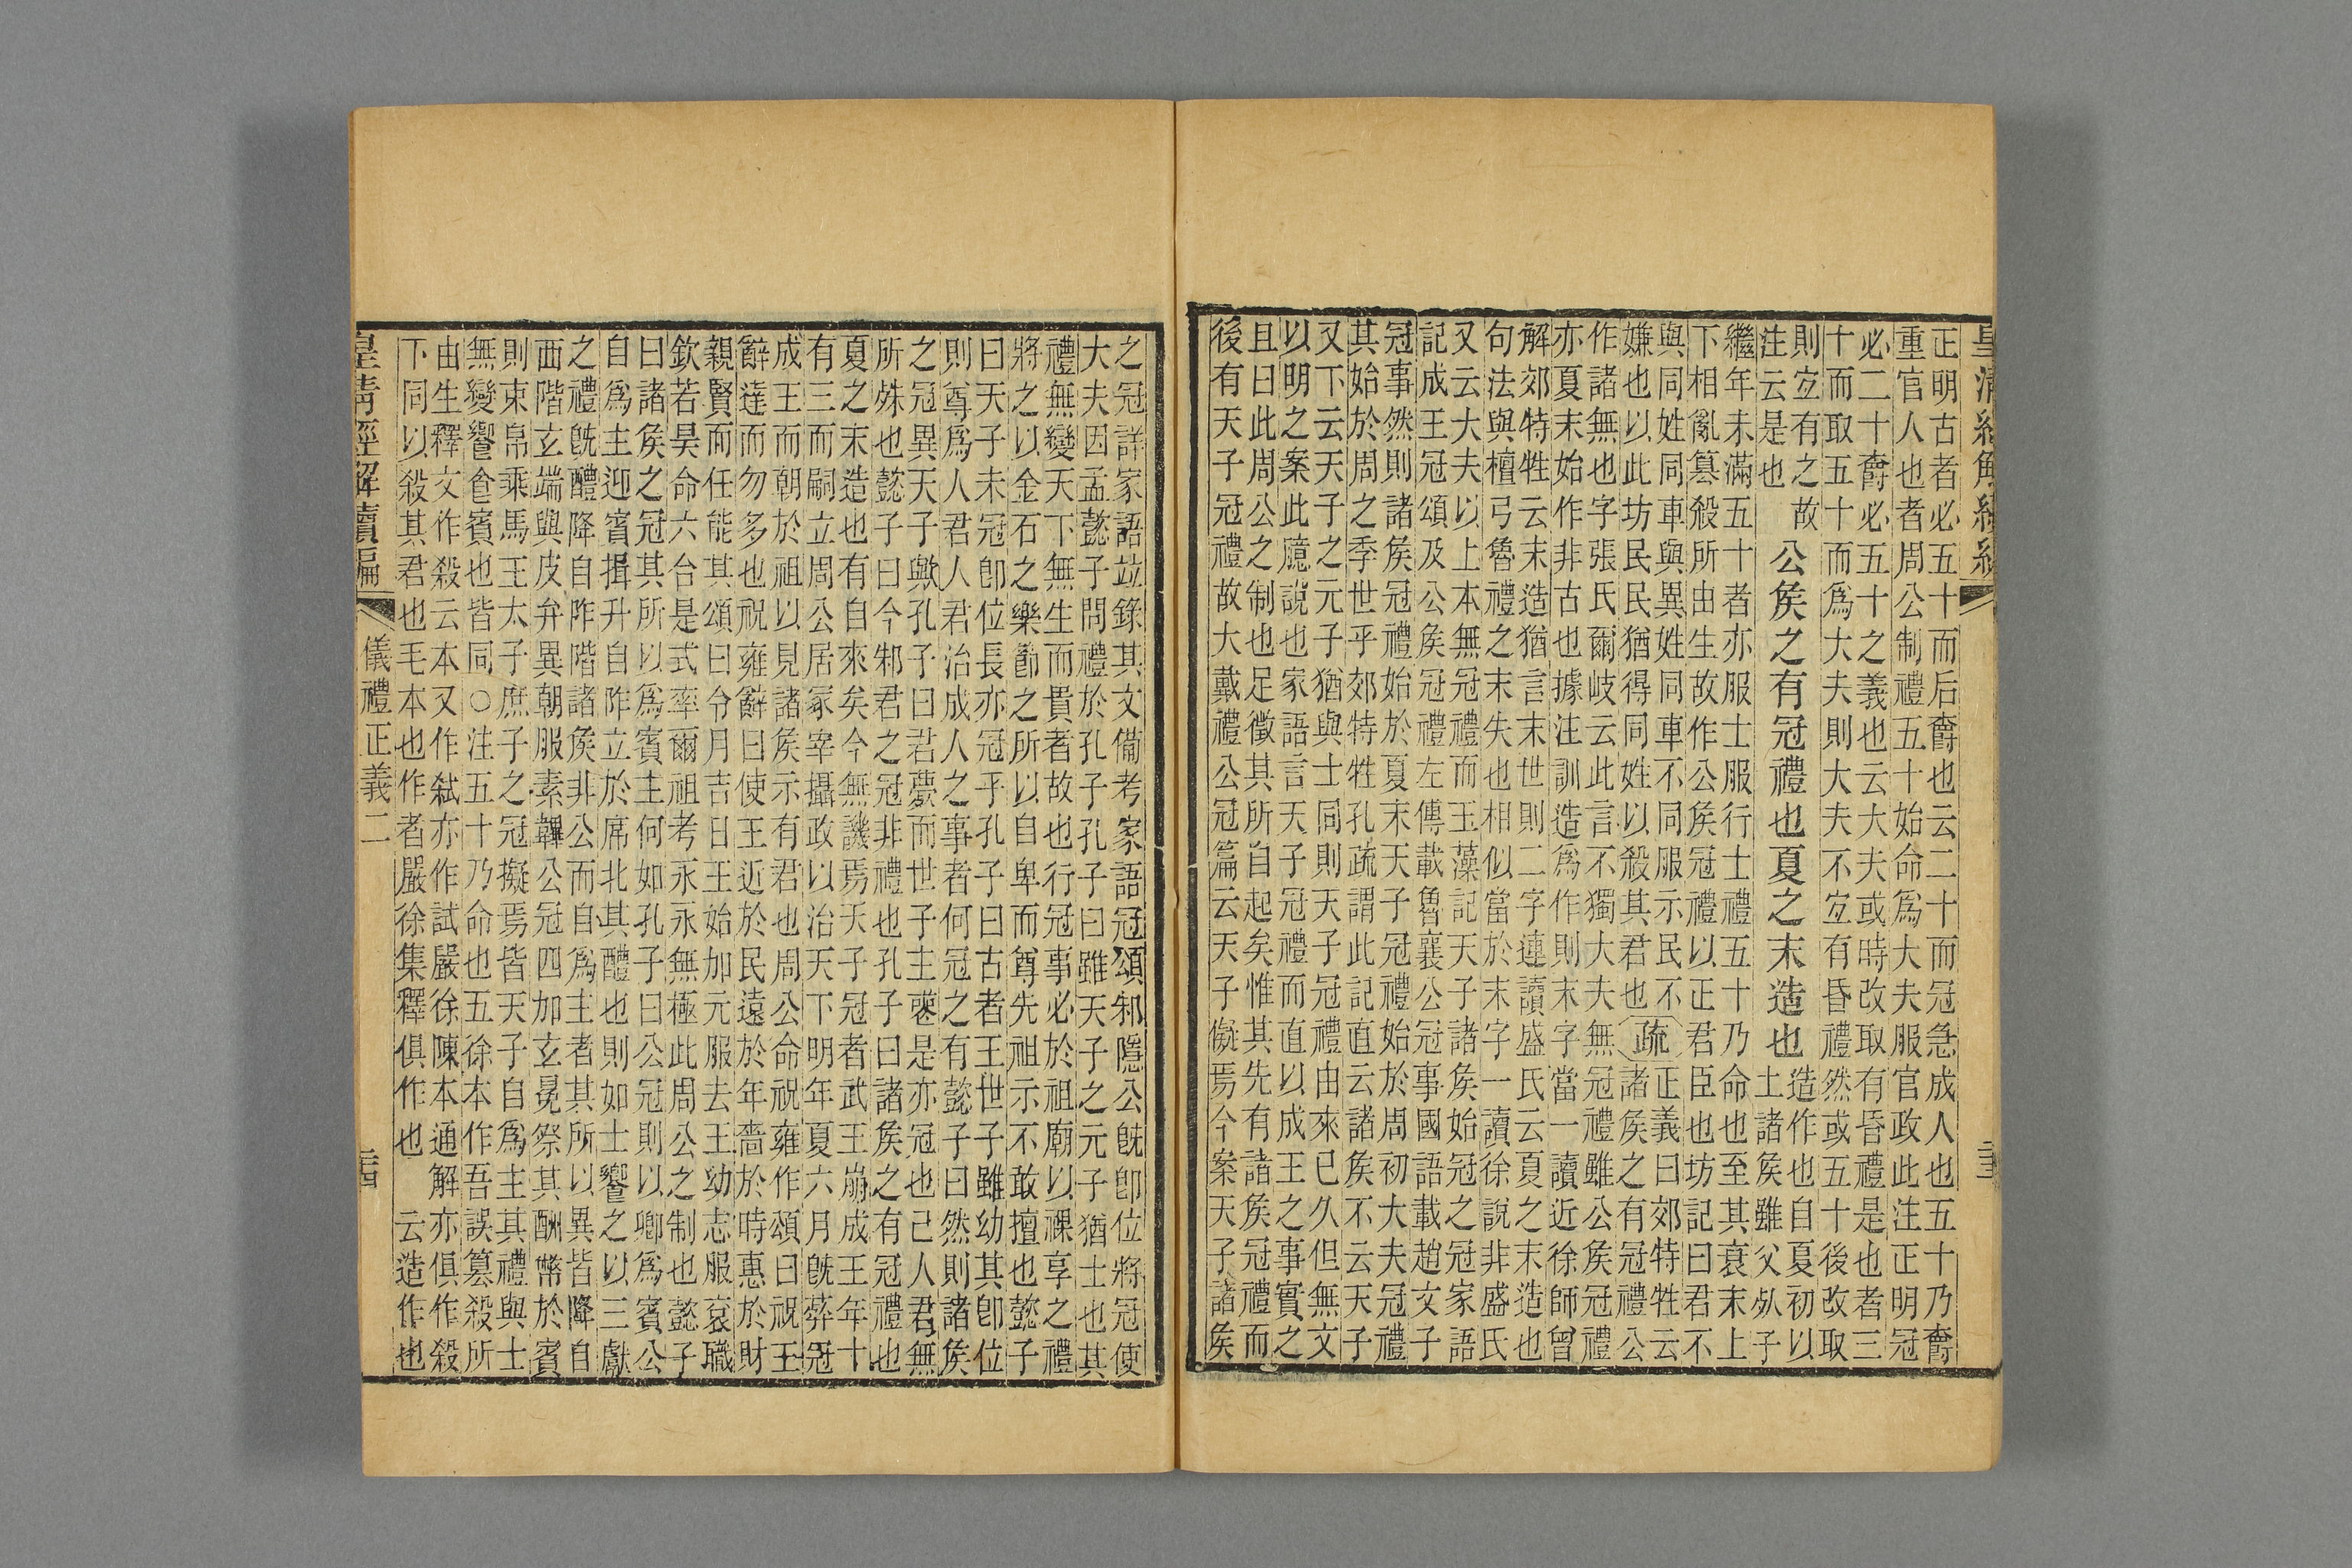 皇清經解續編
二三
正明古者必五十而后爵也云二十而冠急成人也五十乃爵
重官人也者周公制禮五十始命爲大夫服官政此注正明冠
必二十爵必五十之義也云大夫或時改取有昏禮是也者三
十而取五十而爲大夫則大夫不宜有昏禮然或五十後改取
則宜有之故
注云是也
公侯之有冠禮也夏之末造也
造作也自夏初以
上諸侯雖父死子
繼年未滿五十者亦服士服行士禮五十乃命也至其衰末上
下相亂篡殺所由生故作公侯冠禮以正君臣也坊記曰君不
與同姓同車與異姓同車不同服示民不
嫌也以此坊民民猶得同姓以殺其君也
疏
正義曰郊特牲云
諸侯之有冠禮公
作諸無也字張氏爾岐云此言不獨大夫無冠禮雖公侯冠禮
亦夏末始作非古也據注訓造爲作則末字當一讀近徐師曾
解郊特牲云末造猶言末世則二字連讀盛氏云夏之末造也
句法與檀弓魯禮之末失也相似當於末字一讀徐說非盛氏
又云大夫以上本無冠禮而玉藻記天子諸侯始冠之冠家語
記成王冠頌及公侯冠禮左傳載魯襄公冠事國語載趙文子
冠事然則諸侯冠禮始於夏末天子冠禮始於周初大夫冠禮
其始於周之季世乎郊特牲孔疏謂此記直云諸侯不云天子
又下云天子之元子猶與士同則天子冠禮由來已久但無文
以明之案此臆說也家語言天子冠禮而直以成王之事實之
且曰此周公之制也足徵其所自起矣惟其先有諸侯冠禮而
後有天子冠禮故大戴禮公冠篇云天子儗焉今案天子諸侯
之冠詳家語竝錄其文備考家語冠頌邾隱公旣卽位將冠使
大夫因孟懿子問禮於孔子孔子曰雖天子之元子猶士也其
禮無變天下無生而貴者故也行冠事必於祖廟以祼享之禮
將之以金石之樂節之所以自卑而尊先祖示不敢擅也懿子
曰天子未冠卽位長亦冠乎孔子曰古者王世子雖幼其卽位
則尊爲人君人君治成人之事者何冠之有懿子曰然則諸侯
之冠異天子歟孔子曰君薨而世子主喪是亦冠也已人君無
所殊也懿子曰今邾君之冠非禮也孔子曰諸侯之有冠禮也
夏之末造也有自來矣今無譏焉天子冠者武王崩成王年十
有三而嗣立周公居冢宰攝政以治天下明年夏六月旣葬冠
成王而朝於祖以見諸侯示有君也周公命祝雍作頌曰祝王
辭達而勿多也祝雍辭曰使王近於民遠於年嗇於時惠於財
親賢而任能其頌曰令月吉日王始加元服去王幼志服袞職
欽若昊命六合是式率爾祖考永永無極此周公之制也懿子
曰諸侯之冠其所以爲賓主何如孔子曰公冠則以卿爲賓公
自爲主迎賓揖升自阼立於席北其醴也則如士饗之以三獻
之禮旣醴降自阼階諸侯非公而自爲主者其所以異皆降自
西階玄端與皮弁異朝服素韠公冠四加玄冕祭其酬幣於賓
則束帛乘馬王太子庶子之冠擬焉皆天子自爲主其禮與士
無變饗食賓也皆同○注五十乃命也五徐本作吾誤篡殺所
由生釋文作殺云本又作弑亦作試嚴徐陳本通解亦俱作殺
下同以殺其君也毛本也作者嚴徐集釋俱作也　云造作也也
皇清經解續編
儀禮正義二
二四